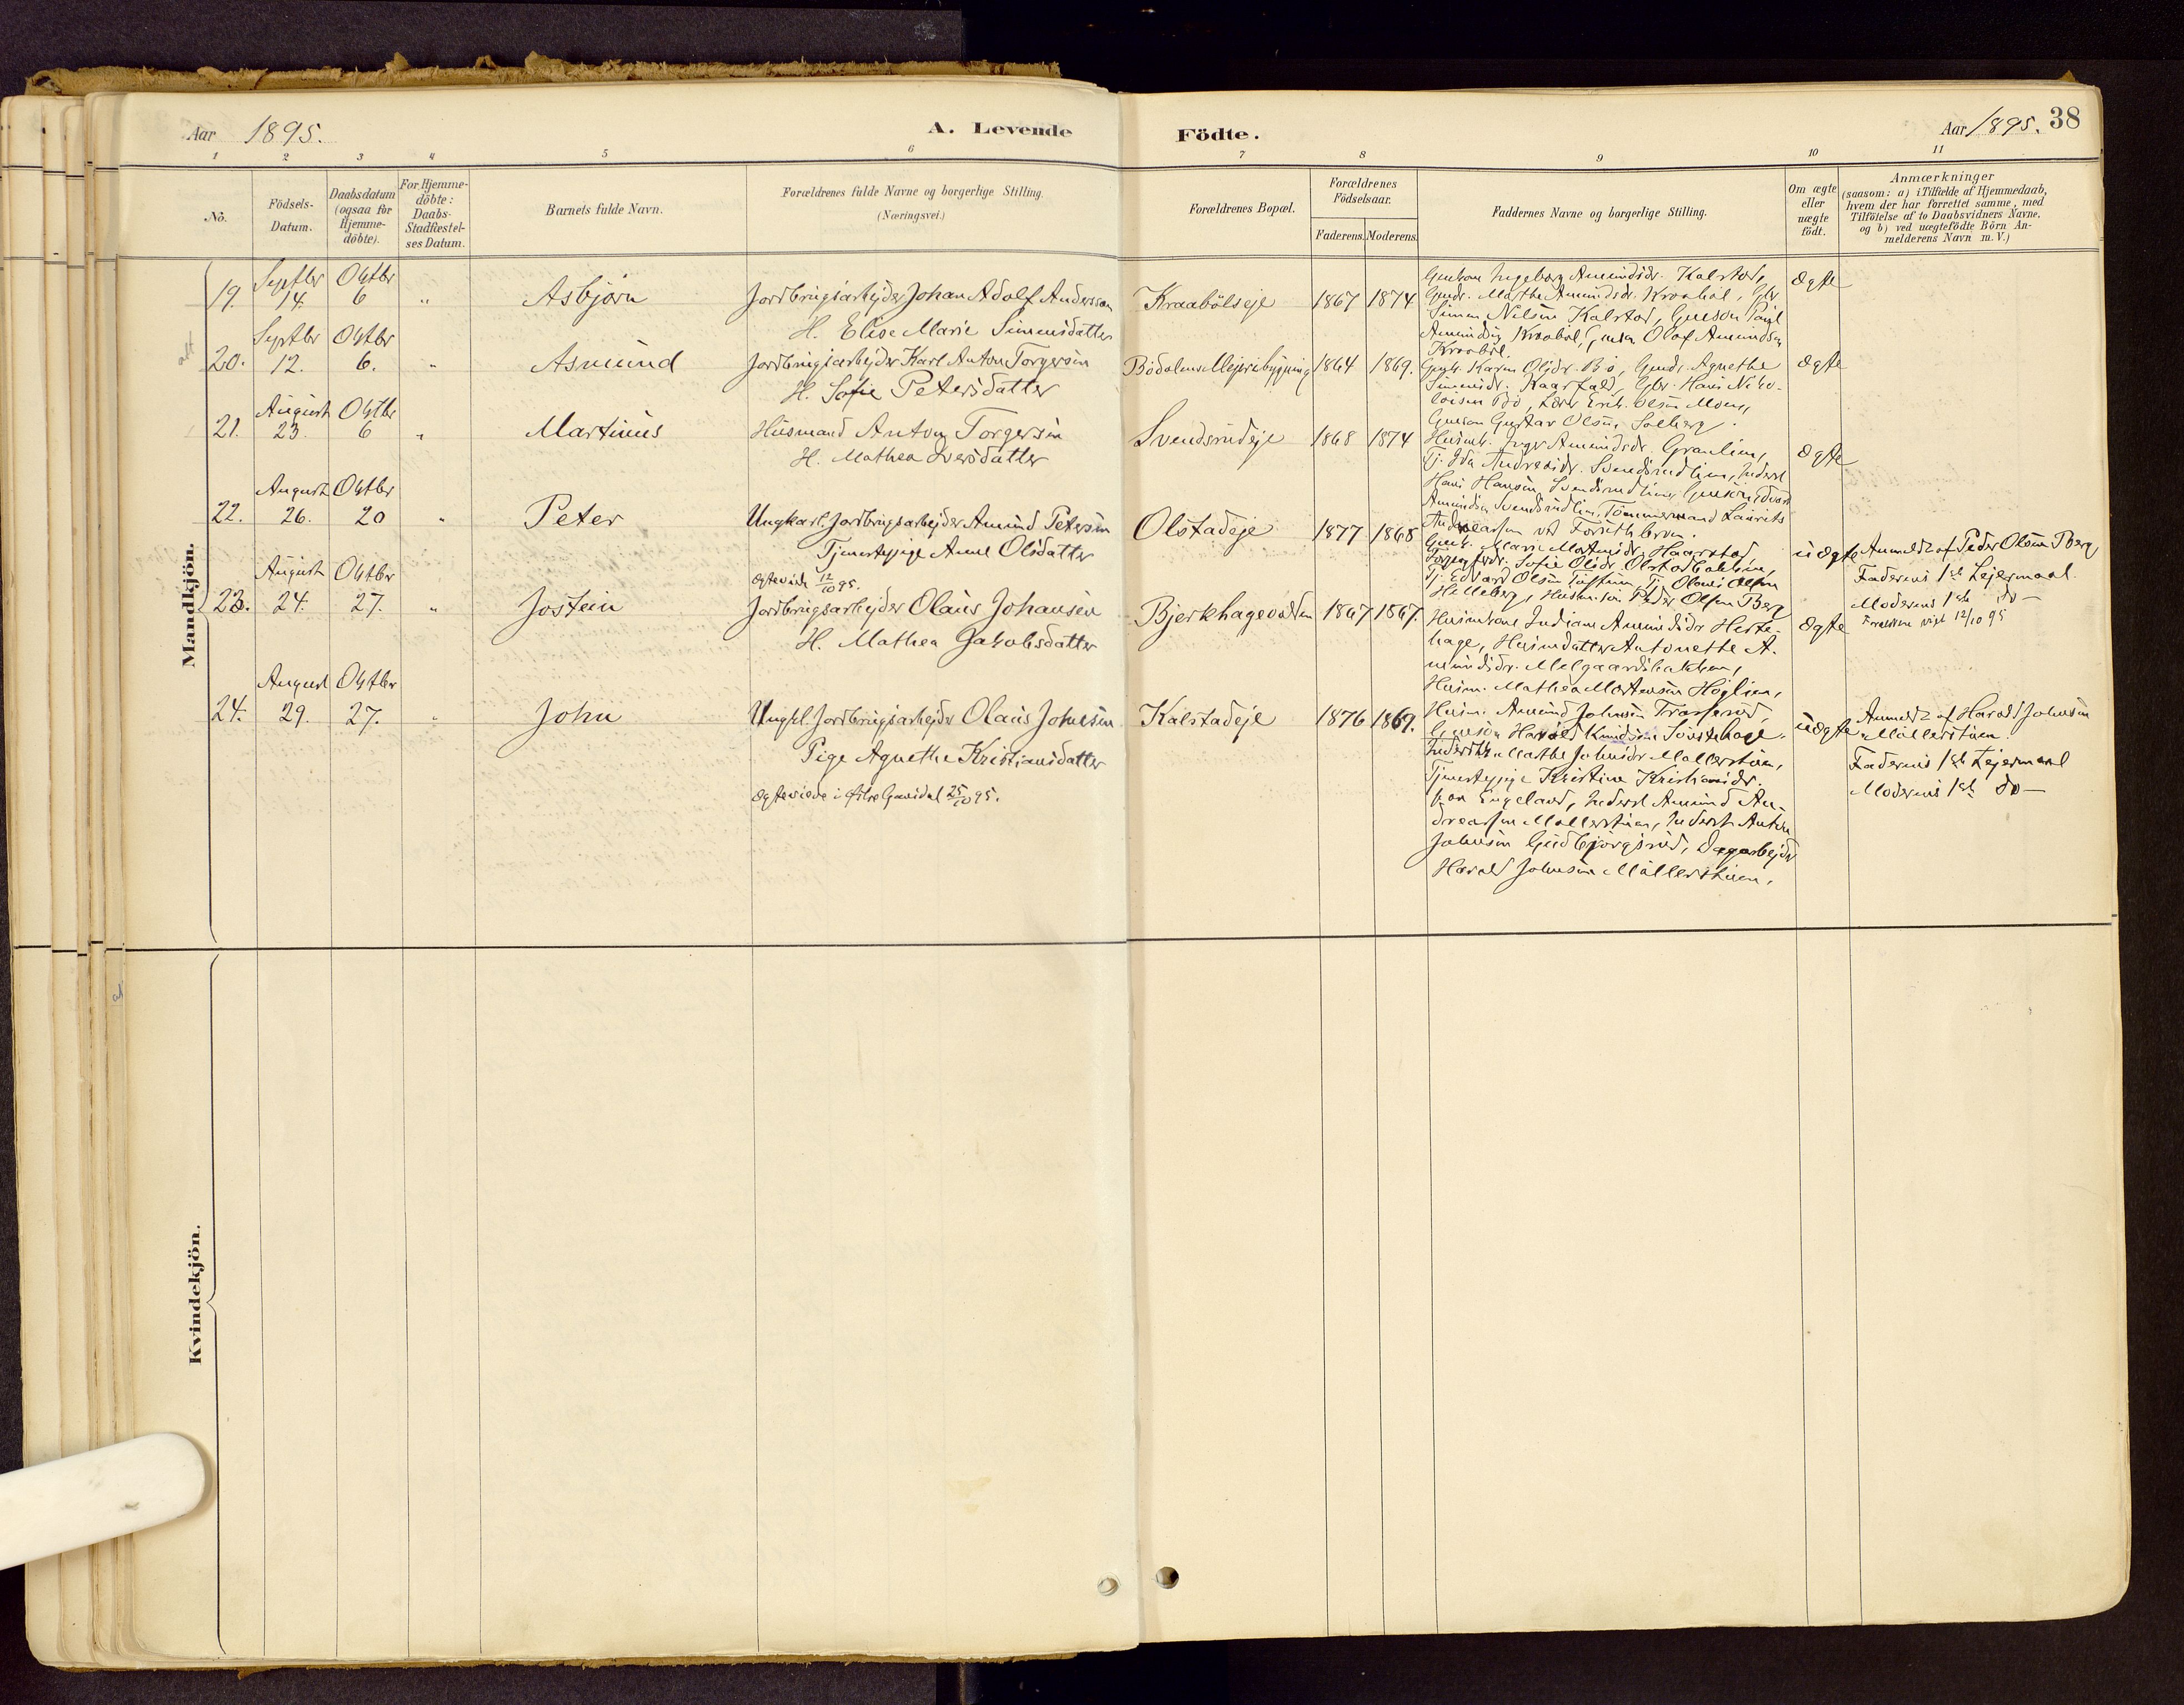 Aar 1895.
A. Levende
Fødte.
Aar 1895. 38
1 2 3 4 5 6 7 8 9 10 11
No.
Födsels-
Datum.
Daabsdatum
(ogsaa for
Hjemme-
döbte).
For Hjemme-
döbte:
Daabs-
Stadfæstel-
ses Datum.
Barnets fulde Navn.
Forældrenes fulde Navne og borgerlige Stilling.
(Næringsvei.)
Forældrenes Bopæl.
Forældrenes
Födselsaar.
Faderens. Moderens.
Faddernes Navne og borgerlige Stilling.
Om ægte
eller
uægte
födt.
Anmærkninger
(saasom: a) i Tilfælde af Hjemmedaab,
hvem der har forrettet samme, med
Tilföielse af to Daabsvidners Navne,
og b) ved uægtefödte Börn An-
melderens Navn m. V.)
Mandkjön.
19. Septbr 14. Oktbr 6 " Asbjørn
Jordbrugsarbejder Johan Adolf Andersson
H. Elise Marie Simensdatter
Kraabölseje 1867 1874
Ingeborg Amundsdr. Kalstad,
Marthe Amundsdr. Kraaböl, Gbr.
Simen Nilsen Kalstad,
Amundsen Kraaböl, Olaf Amundsen
Kraaböl.
Ægte
20. Septbr 12. Oktbr 6. " Asmund
Jordbrugsarbejder Karl Anton Torgersen
H. Sofie Petersdatter
Bödalens Mejeribygning 1864 1869.
Karen Olsdr. Bö, Agnethe
Simensdr. Kaarstad, Gbr. Hans Niko-
laisen Bö, Lærer Erik Olsen Moen,
Gustav Olsen Solberg.
Ægte
21. August 23. Oktbr 6 " Martinus
Husmand Anton Torgersen
H. Mathea Iversdatter
Svendsrudeje 1868 1874
Inger Amundsdr. Granlien,
Tj. Ida Andreasdr. Svendsrudlien, Inderst
Hans Hansen Svendsrudlien,
Amundsen Svendsrudlien, Tömmermand Laurits
Andreassen
Ægte
22. August 26. Oktbr 20 " Peter
Ungkarl. Jordbrugsarbejder Amund Petersen
Tjenestepige Anne Olsdatter
Ægteviede 12/10 95.
Olstadeje 1877 1868
Marie Mortensdr. Haarstad,
Sofie Olsdr. Olstadbakken,
Tj. Edvard Olsen Tofstuen, Tj. Olaus Olsen
Helleberg, Peder Olsen Berg
uægte
Anmeldt af Peder Olsen Berg
Faderens 1ste Lejermaal.
Moderens 1ste do —
Forældrene viet 12/10 95
23. August 24. Oktbr 27. " Jostein
Jordbrugsarbejder Olaus Johansen
H. Mathea Jakobsdatter
Bjerkhagevolden 1867 1867.
Indiane Amundsdr Heste-
hage, Husmdatter Antonette A-
mundsdr. Melgaardsbakken,
Husm. Mathea Mortensen Höglien,
Husm. Amund Johnsen Traaserud,
Harald Knudsen
Ægte
24. August 29. Oktbr 27. " John
Ungkl. Jordbrugsarbejder Olaus Johnsen
Pige Agnethe Kristiansdatter
Ægteviede i Østre Gausdal 25/10 95.
Kalstadeje 1876 1869.
Marthe Johnsdr Møllerstuen,
Tjenestepige Kristine Kristiansdr.
Engeland, Inderst Amund An-
dreassen Møllerstuen, Inderst Anton
Johnsen Gudbjörgsrud, Dagarbejder
Harald Johnsen Møllerstuen.
uægte
Anmeldt af Harald Johnsen
Möllerstuen
Faderens 1ste Lejermaal
Moderens 1ste do —
Kvindekjön.